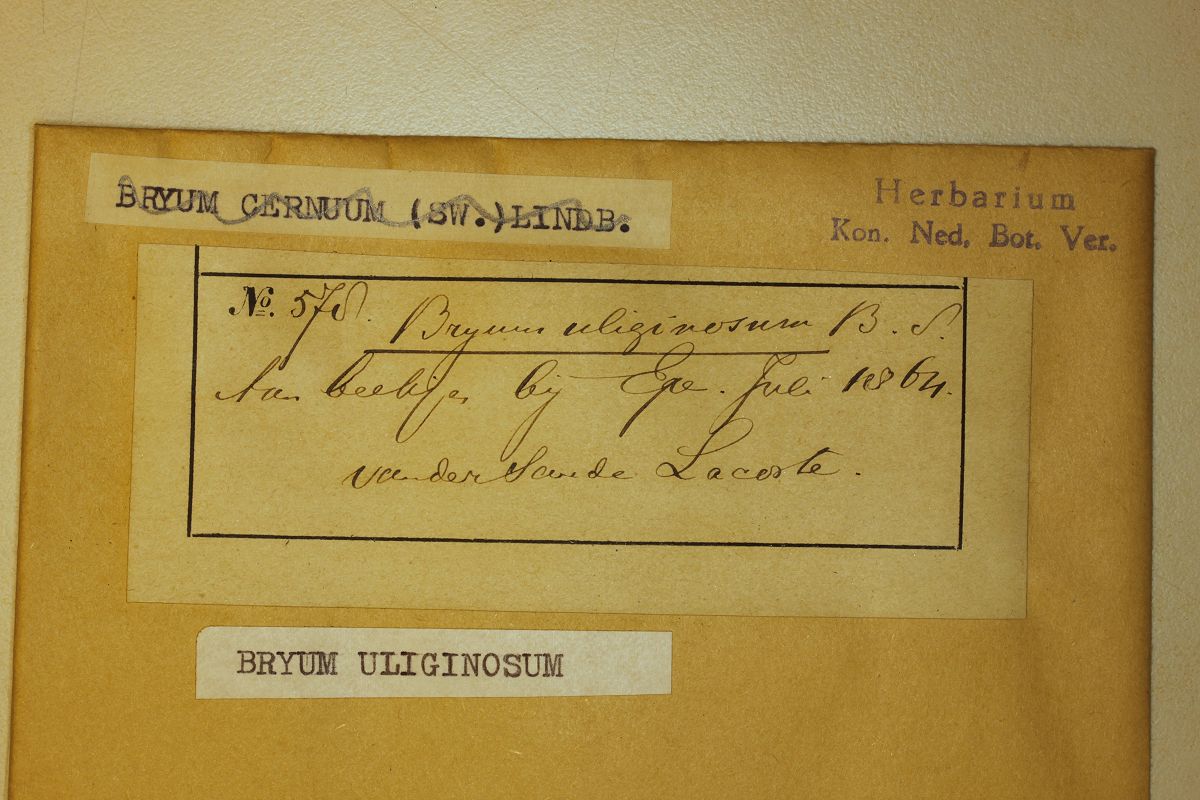 BRYUM CERNUUM (SW.)LINDB.
Herbarium
Kon. Ned. Bot. Ver.
No. 578. Bryum uliginosum B. S.
Aan beekjes bij Epe. Juli 1864.
van der Sande Lacoste.
BRYUM ULIGINOSUM